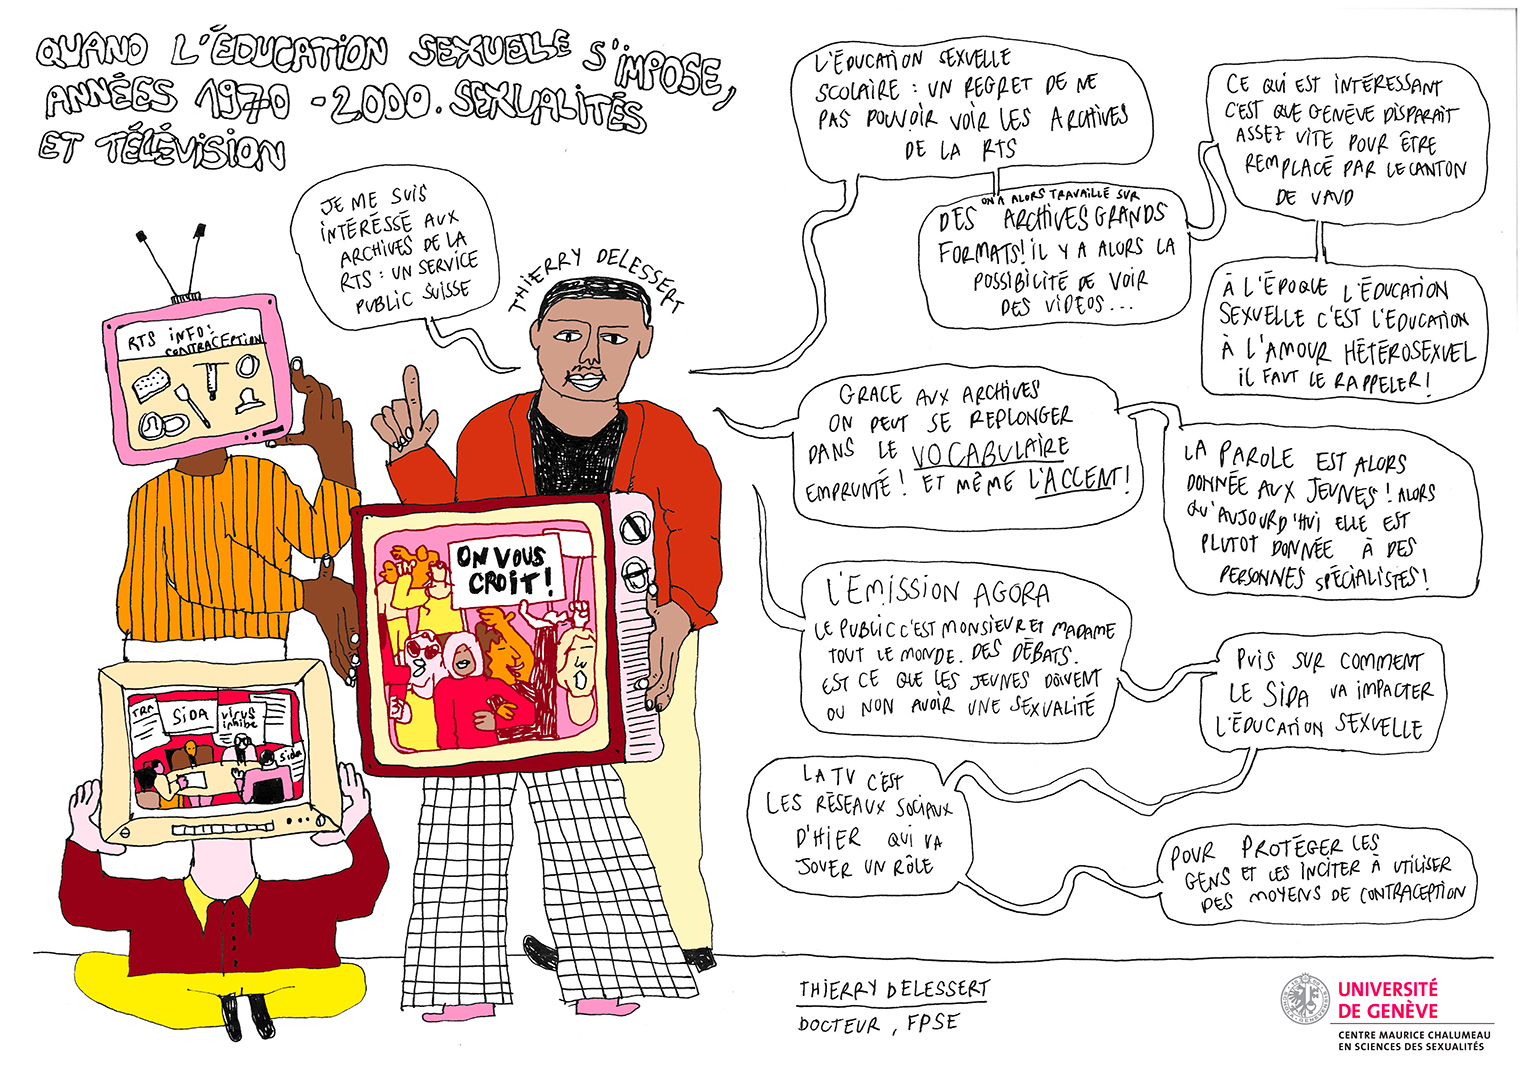 QUAND L'ÉDUCATION SEXUELLE S'IMPOSE,
ANNÉES 1970 - 2000. SEXUALITÉS
ET TÉLÉVISION
JE ME SUIS
INTÉRÉSSÉ AUX
ARCHIVES DE LA
RTS : UN SERVICE
PUBLIC SUISSE
THIERRY DELESSERT
RTS INFO:
CONTRACEPTION
ON VOUS
CROIT !
TRA
SIDA
VIRUS
inhibe
Sida
L'ÉDUCATION SEXUELLE
SCOLAIRE : UN REGRET DE NE
PAS POUVOIR VOIR LES ARCHIVES
DE LA RTS
ON A ALORS TRAVAILLÉ SUR
DES ARCHIVES GRANDS
FORMATS! IL Y A ALORS LA
POSSIBILITÉ DE VOIR
DES VIDÉOS...
CE QUI EST INTÉRESSANT
C'EST QUE GENÈVE DISPARAIT
ASSEZ VITE POUR ÊTRE
REMPLACÉ PAR LE CANTON
DE VAUD
À L'ÉPOQUE L'ÉDUCATION
SEXUELLE C'EST L'EDUCATION
À L'AMOUR HÉTÉROSEXUEL
IL FAUT LE RAPPELER!
GRACE AUX ARCHIVES
ON PEUT SE REPLONGER
DANS LE VOCABULAIRE
EMPRUNTÉ! ET MÊME L'ACCENT!
LA PAROLE EST ALORS
DONNÉE AUX JEUNES! ALORS
QU'AUJOURD'HUI ELLE EST
PLUTOT DONNÉE À DES
PERSONNES SPÉCIALISTES!
L'EMISSION AGORA
LE PUBLIC C'EST MONSIEUR ET MADAME
TOUT LE MONDE. DES DÉBATS.
EST CE QUE LES JEUNES DOIVENT
OU NON AVOIR UNE SEXUALITÉ
PUIS SUR COMMENT
LE SIDA VA IMPACTER
L'ÉDUCATION SEXUELLE
LA TV C'EST
LES RÉSEAUX SOCIAUX
D'HIER QUI VA
JOUER UN RÔLE
POUR PROTÉGER LES
GENS ET LES INCITER À UTILISER
DES MOYENS DE CONTRACEPTION
THIERRY DELESSERT
DOCTEUR, FPSE
UNIVERSITÉ
DE GENÈVE
CENTRE MAURICE CHALUMEAU
EN SCIENCES DES SEXUALITÉS